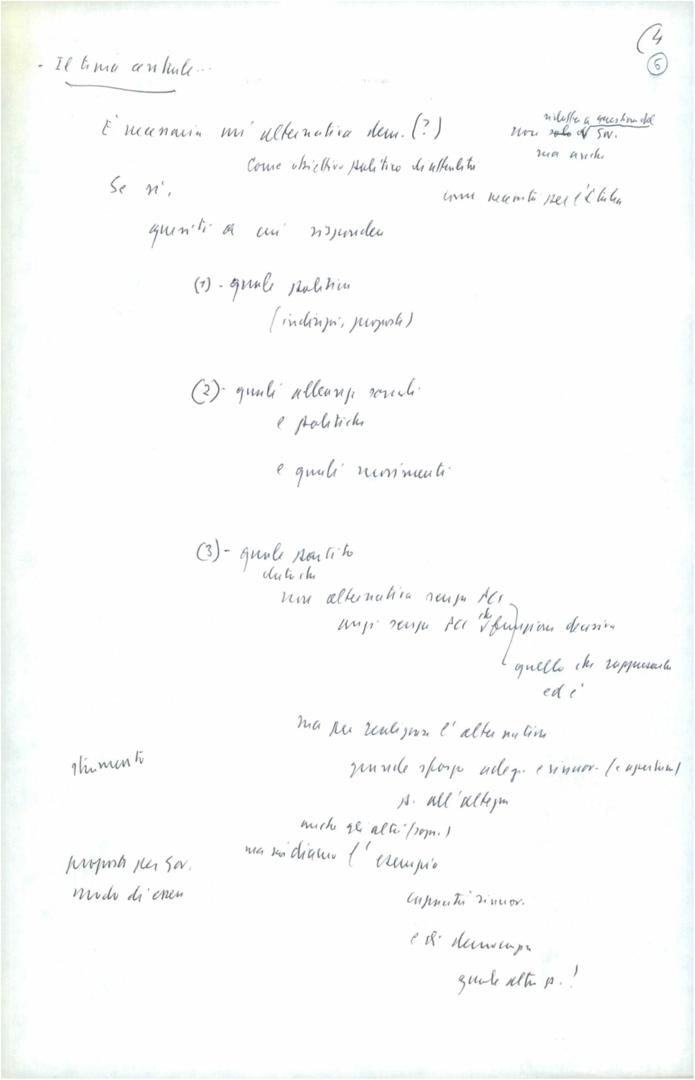 4
6
- Il tema centrale...
È necessaria un'alternativa dem. (?)
ridotta a question del
non solo Gov.
ma anche
Come obiettivo politico
come necessità per l'Italia
Se sì,
quesiti a cui rispondere
(1) - quale politica
(indirizzi, proposte)
(2) - quali alleanze sociali
e politiche
e quali movimenti
(3) - quale partito
dato che
non alternativa senza PCI
anzi senza PCI che funzione decisiva
quello che rappresenta
ed è
ma per realizzare l'alternativa
strumento
grande sforzo adeg. e rinnov. (e apertura)
p. all'altezza
anche gli altri
ma noi diamo l'esempio
proposta per Gov.
modo di essere
capacità rinnov.
e di democrazia
quale altro p.!